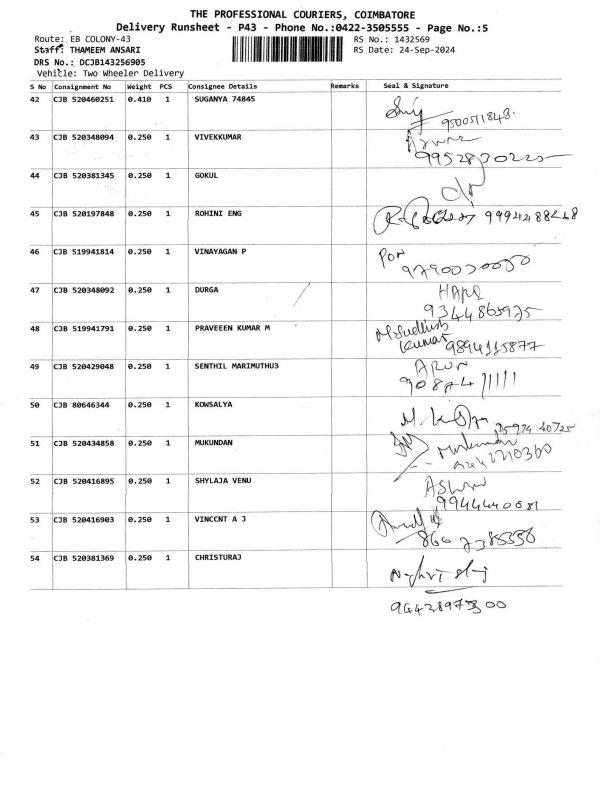 THE PROFESSIONAL COURIERS, COIMBATORE
Delivery Runsheet - P43 - Phone No.:0422-3505555 - Page No.:5
Route: EB COLONY-43 RS No.: 1432569
Staff: THAMEEM ANSARI RS Date: 24-Sep-2024
DRS No.: DCJB143256905
Vehicle: Two Wheeler Delivery
S No Consignment No Weight PCS Consignee Details Remarks Seal & Signature
42 CJB 520460251 0.410 1 SUGANYA 74845
9500511848.
43 CJB 520348094 0.250 1 VIVEKKUMAR
9952830225
44 CJB 520381345 0.250 1 GOKUL
45 CJB 520197848 0.250 1 ROHINI ENG
46 CJB 519941814 0.250 1 VINAYAGAN P
Pon
47 CJB 520348092 0.250 1 DURGA
HARI
9344865975
48 CJB 519941791 0.250 1 PRAVEEEN KUMAR M
M. Sudhish
Kumar
9894115877
49 CJB 520429048 0.250 1 SENTHIL MARIMUTHU3
ARUN
90874 11111
50 CJB 80646344 0.250 1 KOWSALYA
51 CJB 520434858 0.250 1 MUKUNDAN
Mukundan
52 CJB 520416895 0.250 1 SHYLAJA VENU
53 CJB 520416903 0.250 1 VINCCNT A J
54 CJB 520381369 0.250 1 CHRISTURAJ